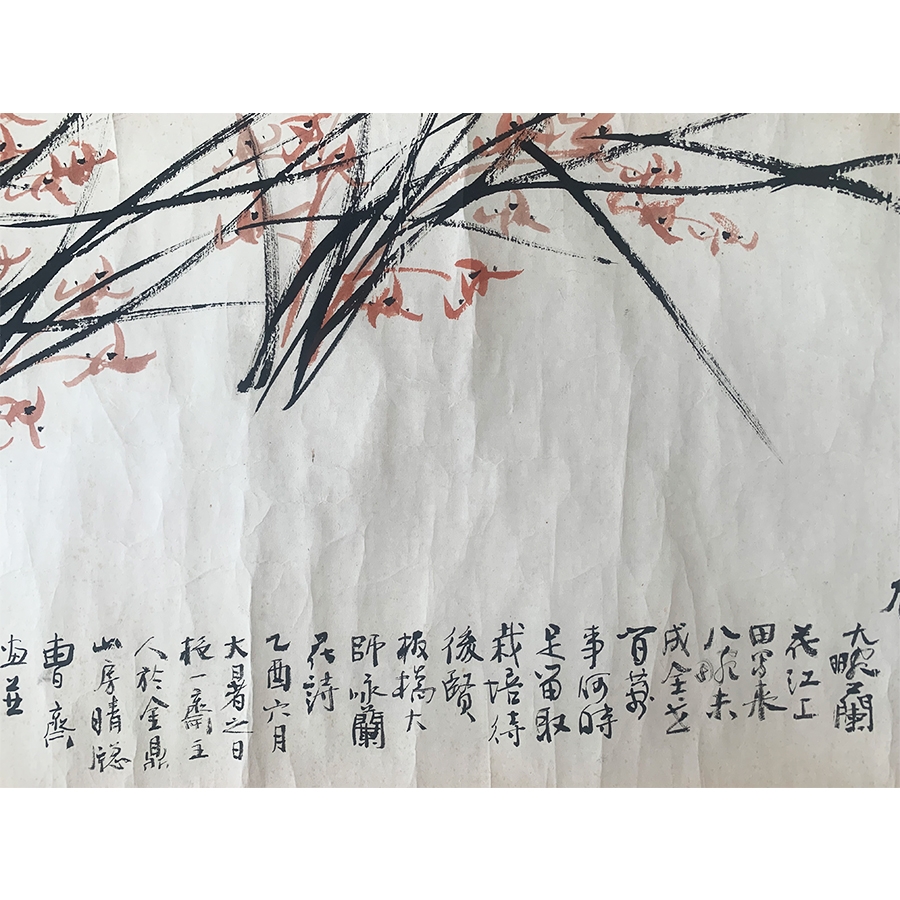 九畹蘭
花江上
田寫來
八畹未
成全世
間萬
事何時
足留取
栽培待
後賢
板橋大
師咏蘭
花詩
乙酉六月
大暑之日
一齋主
人於金鼎
山房晴牕
曹齊
画並